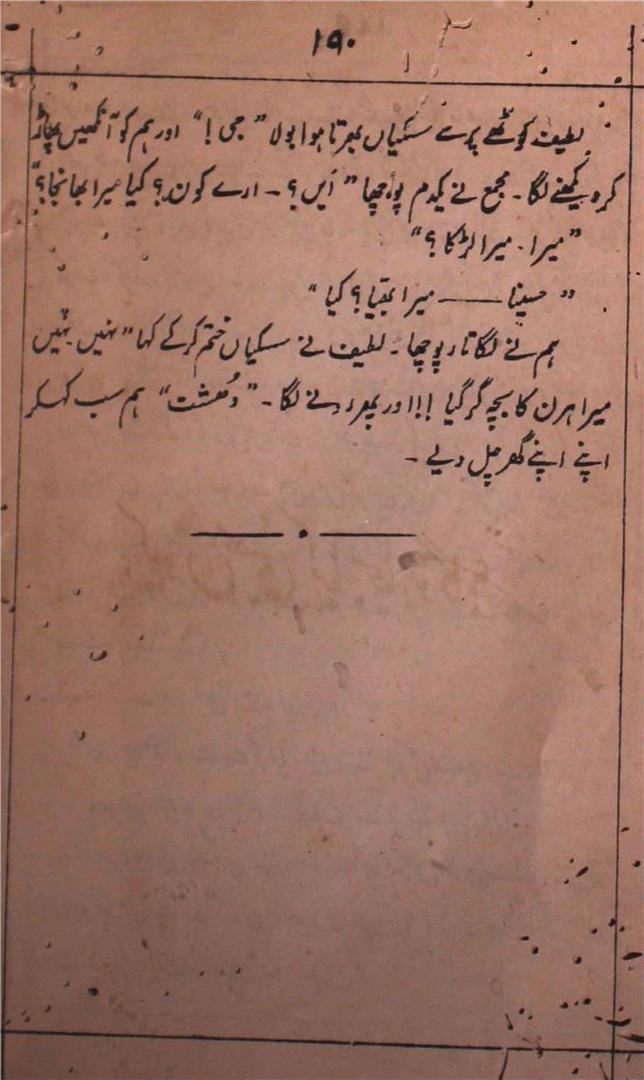 ۱۹۰
لطیف کوٹھے پر سے سسکیاں بھرتا ہوا بولا " جی ! " اور ہم کو آنکھیں پھاڑ
کر دیکھنے لگا ۔ مجمع نے یکدم پوچھا " ایں ؟ ۔ ارے کون ؟ کیا میرا بھانجا ؟ "
" میرا ۔ میرا لڑکا ؟ "
" حسینا —— میرا بھتیجا ؟ کیا "
ہم نے لگاتار پوچھا ۔ لطیف نے سسکیاں ختم کر کے کہا " نہیں نہیں
میرا ہرن کا بچہ گر گیا !! اور پھر رونے لگا ۔ " دھشت " ہم سب کہکر
اپنے اپنے گھر چل دیے ۔